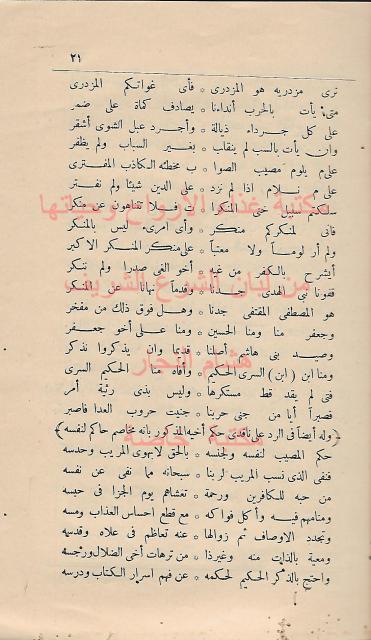 ٢١
ترى مزدريه هو المزدرى * فأى غواتكم المزدرى
متى يأت بالحرب أندادنا * يصادف كماة على ضمر
على كل جرداء ذيالة * وأجرد عبل الشوى أشقر
وان يأت بالسب لم ينقلب * بغير السباب ولم يظفر
على م يلوم مصيب الصوا * ب مخطئه الكاذب المفترى
على م نلام اذا لم نزد * على الدين شيئا ولم نفتر
سلكتم سبيل خى المنكرا * ت فلا تنتاهون عن منكر
فانى لمنكركم منكر * وأى امرىء ليس بالمنكر
ولم أر لوماً ولا معتباً * على منكر المنكر الاكبر
أيشرح بالكفر من غيه * أخو الغى صدرا ولم ننكر
قفونا نبى الهدى جدنا * وقدماً نهانا عن المنكر
هو المصطفى المقتفى جدنا * وهل فوق ذلك من مفخر
وجعفر منا ومنا الحسين * ومنا على أخو جعفر
وصيد بنى هاشم أصلنا * قديما وان يذكروا نذكر
ومنا ابن (ابن) السرى الحكيم * وأفاه منا الحكيم السرى
فتى لم يفد قط مستكرها * وليس بذى رثية أمر
فصبراً أبا من جنى حربنا * جنيت حروب العدا فاصبر
﴿وله أيضاً فى الرد على ناقدى حكم أخيه المذكور بانه مخاصم حاكم لنفسه﴾
حكم المصيب لنفسه ولجنسه * بالحق لا بهوى المريب وحدسه
فنفى الذى نسب المريب لربنا * سبحانه مما نفى عن نفسه
من حبه للكافرين ورحمة * تغشاهم يوم الجزا فى حبسه
ومنامهم فيه وأكل فواكه * مع قطع احساس العذاب ومسه
وتجدد الاوصاف ثم زوالها * عنه تعاظم فى علاه وقدسه
ومعية بالذات منه وغيرذا * من ترهات أخى الضلال ورجسه
واحتج بالذكر الحكيم لحكمه * عن فهم اسرار الكتاب ودرسه
مكتبة غذاء الارواح ومحبتها
من لبان الشرع الشريف
هشام النجار
مكتبة خاصة